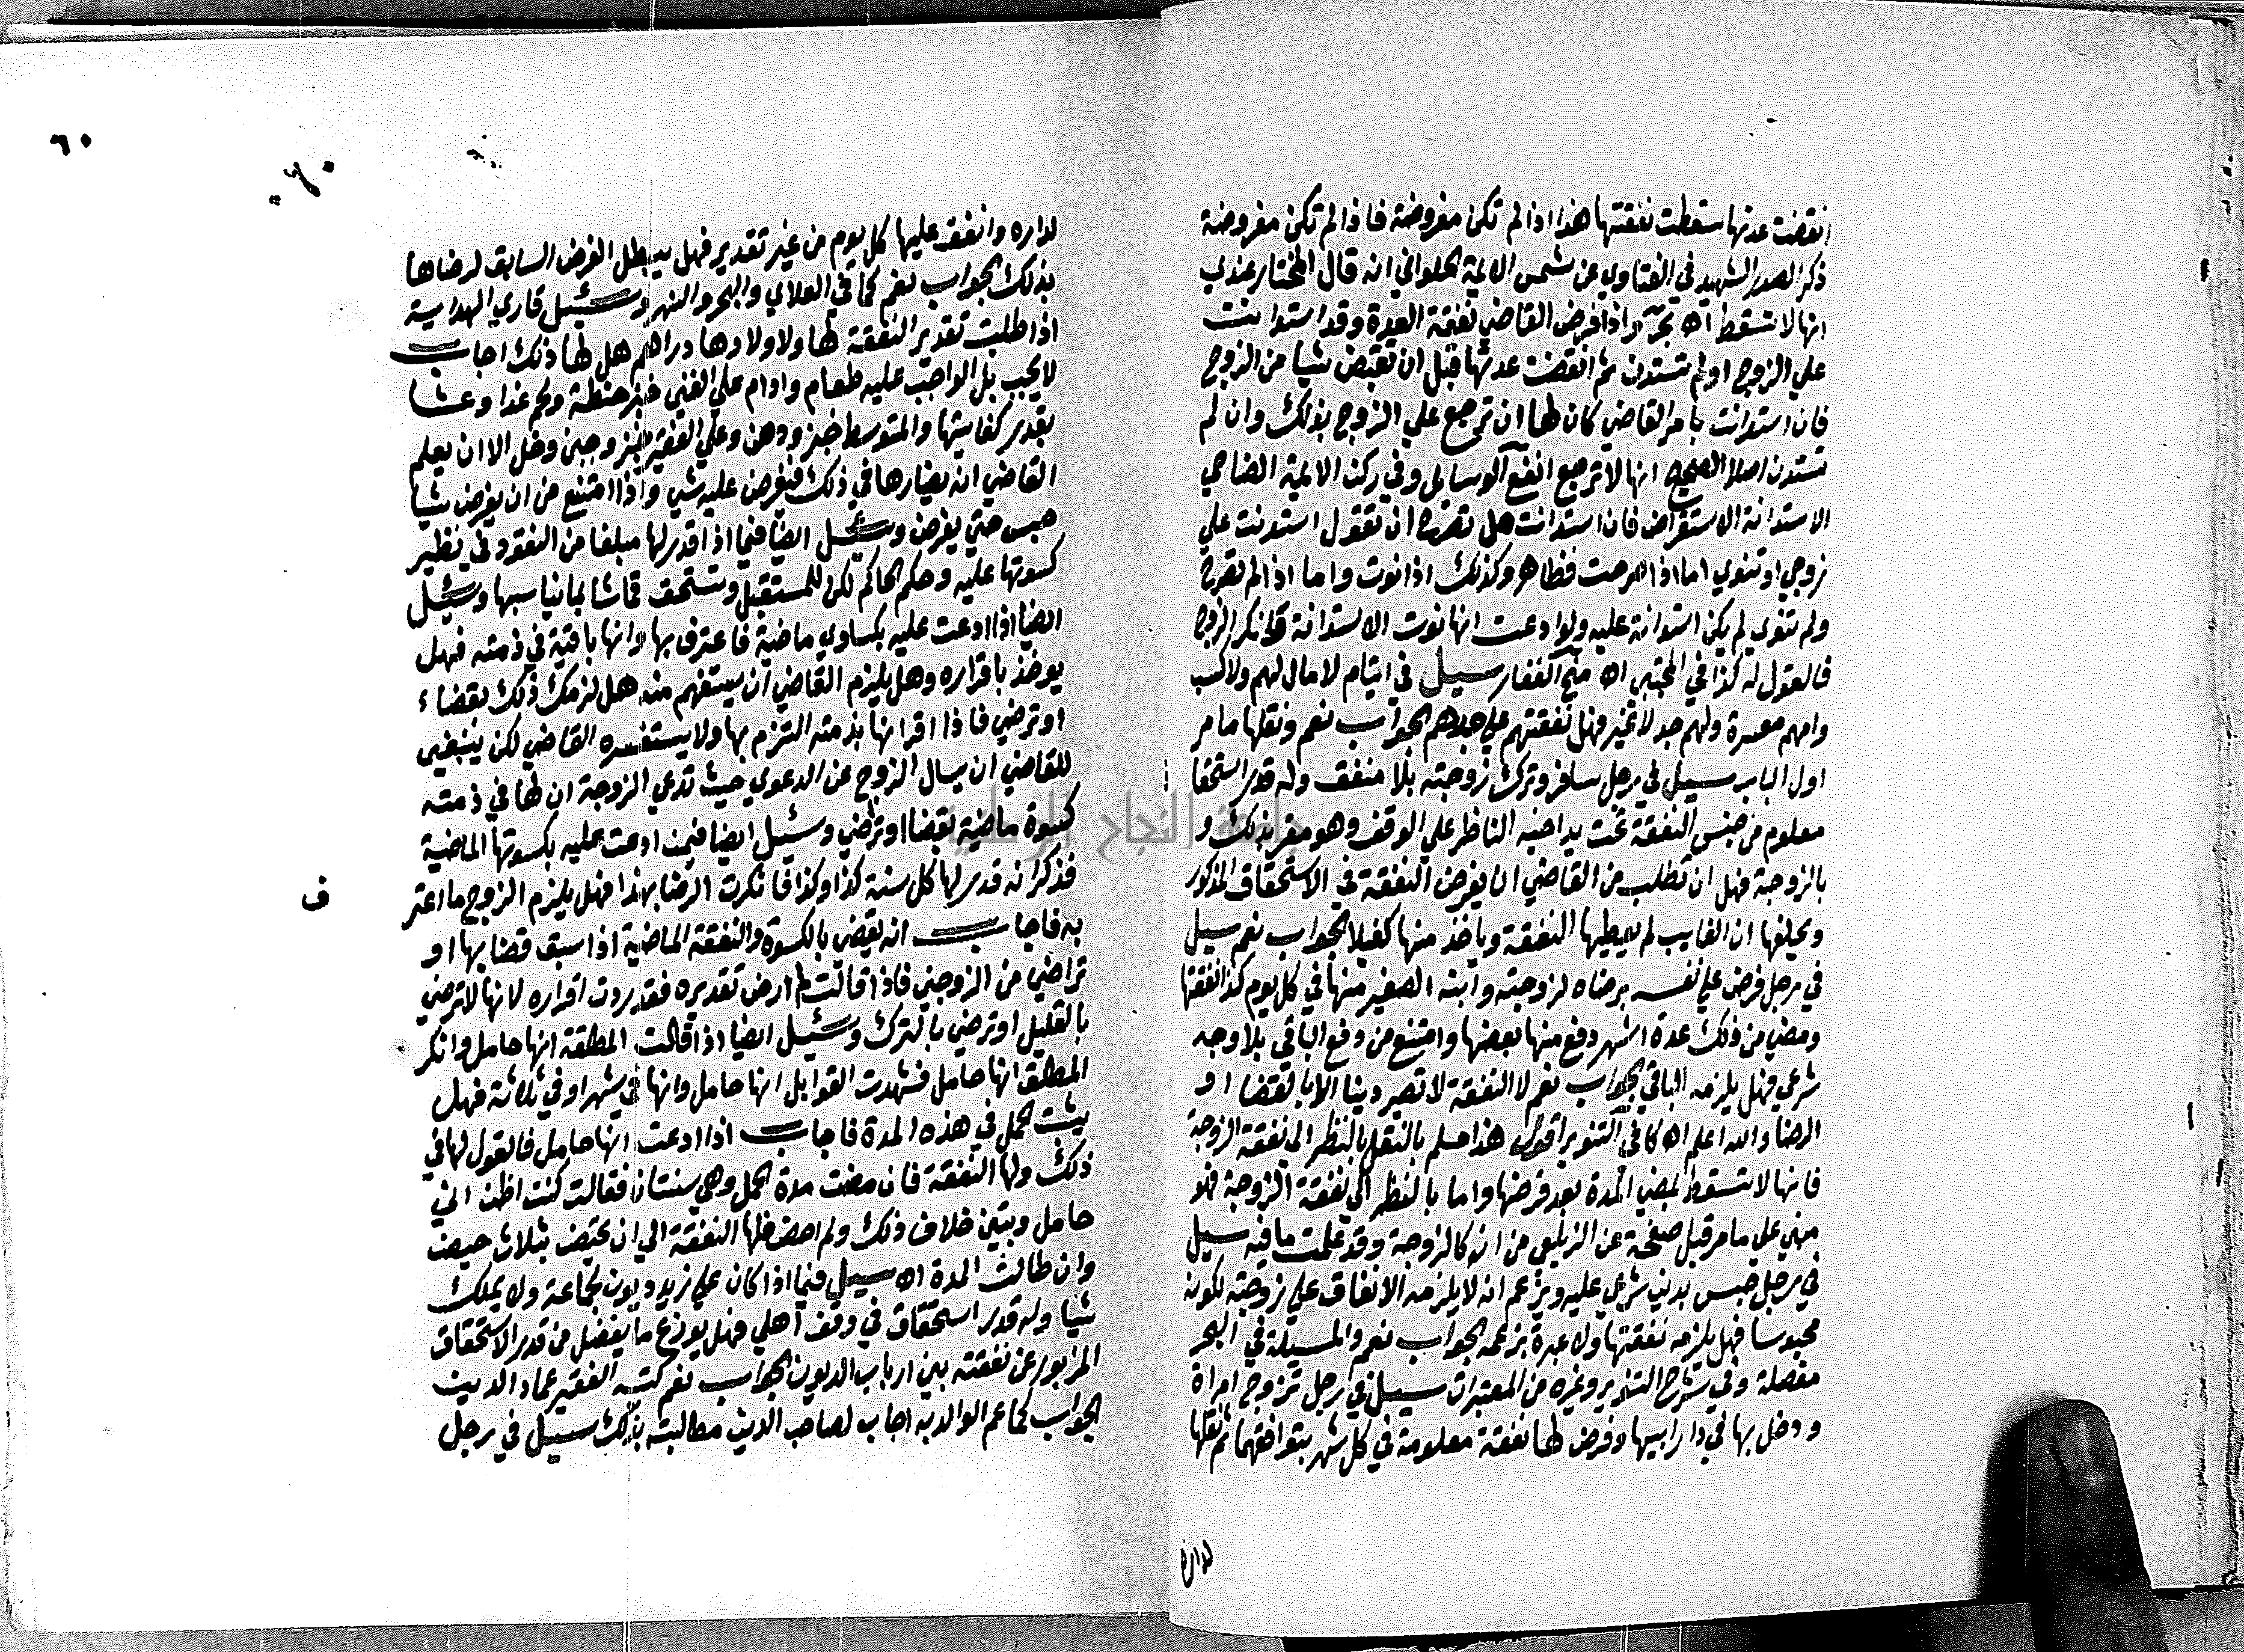 انقضت عدتها سقطت نفقتها هذا اذا لم تكن مفروضة فاذا لم تكن مفروضة
ذكر الصدر الشهيد في الفتاوي عن شمس الايمة الحلواني انه قال المختار عندي
انها لا تسقط اه بحر واذا فرض القاضي نفقة العدة وقد استدانت
علي الزوج اولم تستدن ثم انقضت عدتها قبل ان تقبض شيا من الزوج
فان استدانت بامر القاضي كان لها ان ترجع علي الزوج بذلك وان لم
تستدن اصلا الصحيح انها لا ترجع انفع الوسايل وفي ركن الايمة الصباحي
الاستدانة الاستقراض فان استدانت هل تصرح ان تقول استدنت علي
زوجي او تنوي اما اذا صرحت فظاهر وكذلك اذا نوت واما اذا لم تصرح
ولم تنوي لم يكن استدانة عليه ولو ادعت انها نوت الاستدانة وانكر الزوج
فالقول له كذا في المجتبي اه منح الغفار سيل في ايتام لا مال لهم ولا كسب
وامهم معسرة ولهم جد لا غير فهل نفقتهم علي جدهم الجواب نعم ونقلها ما مر
اول الباب سيل في رجل سافر وترك زوجته بلا منفق وله قدر استحقاق
معلوم من جنس النفقة تحت يد اخيه الناظر علي الوقف وهو مقر بذلك و
بالزوجة فهل ان تطلب من القاضي ان يفرض النفقة في الاستحقاق المذكور
ويحلفها ان الغايب لم يعطيها النفقة وياخذ منها كفيلا الجواب نعم سيل
في رجل فرض علي نفسه برضاه لزوجته وابنه الصغير منها في كل يوم كذا لنفقتها
ومضي من ذلك عدة اشهر دفع منها بعضها وامتنع من دفع الباقي بلا وجه
شرعي فهل يلزمه الباقي الجواب نعم لا النفقة لا تصير دينا الا بالقضا او
الرضا والله اعلم اه كافي التنوير اقول هذا مسلم بالنقل بالنظر الي نفقة الزوجة
فانها لا تسقط بمضي المدة بعد فرضها واما بالنظر الي نفقة الزوجة فهو
مبني علي ما مر قبل صفحة عن الزيلعي من انه كالزوجة وقد علمت ما فيه سيل
في رجل حبس بدين شرعي عليه ويزعم انه لا يلزمه الانفاق علي زوجته لكونه
محبوسا فهل يلزمه نفقتها ولا عبرة بزعمه الجواب نعم والمسيلة في البحر
مفصلة وفي شرح التنوير وغيره من المعتبرات سيل في رجل تزوج امراة
ودخل بها في دار ابيها وفرض لها نفقة معلومة في كل شهر بتوافقهما ثم نقلها
لداره
٦٠
لداره وانفق عليها كل يوم من غير تقدير فهل يبطل الفرض السابق لرضاها
بذلك الجواب نعم كما في العلاي والبحر والنهر وسئيل قاري الهداية
اذا طلبت تقدير النفقة لها ولاولادها دراهم هل لها ذلك اجاب
لا يجب بل الواجب عليه طعام وادام علي الغني خبز حنطة ولحم غدا وعشا
بقدر كفايتها والمتوسط خبز ودهن وعلي الفقير خبز وجبن وخل الا ان يعلم
القاضي انه يضارها في ذلك فيفرض عليه شي واذا امتنع من ان يفرض شيا
حبس حتي يفرض وسئيل ايضا فيما اذا قدر لها مبلغا من النقود في نظير
كسوتها عليه وحكم الحاكم لكن للمستقبل وتستحق قماشا بما يناسبها وسئيل
ايضا اذا ادعت عليه بكساوي ماضية فاعترف بها وانها باقية في ذمته فهل
يوخذ باقراره وهل يلزم القاضي ان يستفهم منه هل لزمك ذلك بقضاء
او ترضي فاذا اقر انها بذمته التزم بها ولا يستفسره القاضي لكن ينبغي
للقاضي ان يسال الزوج عن الدعوي حيث تدعي الزوجة ان لها في ذمته
كسوة ماضية بقضا او تراضي وسئيل ايضا فيمن ادعت عليه بكسوتها الماضية
فذكر انه قدر لها كل سنة كذا وكذا فانكرت الرضا بهذا فهل يلزم الزوج ما اعتر
ف
به فاجاب انه يقضي بالكسوة والنفقة الماضية اذا سبق قضا بها او
تراضي من الزوجين فاذا قالت لم ارض تقديره فقد ردت اقراره لانها لا ترضي
بالقليل او ترضي بالترك وسئيل ايضا اذا قالت المطلقة انها حامل وانكر
المطلق انها حامل فشهدت القوابل انها حامل وانها في شهر او في ثلاثة فهل
يثبت الحمل في هذه المدة فاجاب اذا ادعت انها حامل فالقول لها في
ذلك ولها النفقة فان مضت مدة الحمل وهي سنتان فقالت كنت اظن اني
حامل وتبين خلاف ذلك ولم احض فلها النفقة الي ان تحيض بثلاث حيض
وان طالت المدة اه سيل فيما اذا كان علي زيد ديون لجماعة ولا يملك
شيا وله قدر استحقاق في وقف اهلي فهل يوزع ما يفضل من قدر الاستحقاق
المزبور عن نفقته بين ارباب الديون الجواب نعم كتبه الفقير عماد الدين
الجواب كما عم الوالد به اجاب لصاحب الدين مطالبته بذلك سيل في رجل